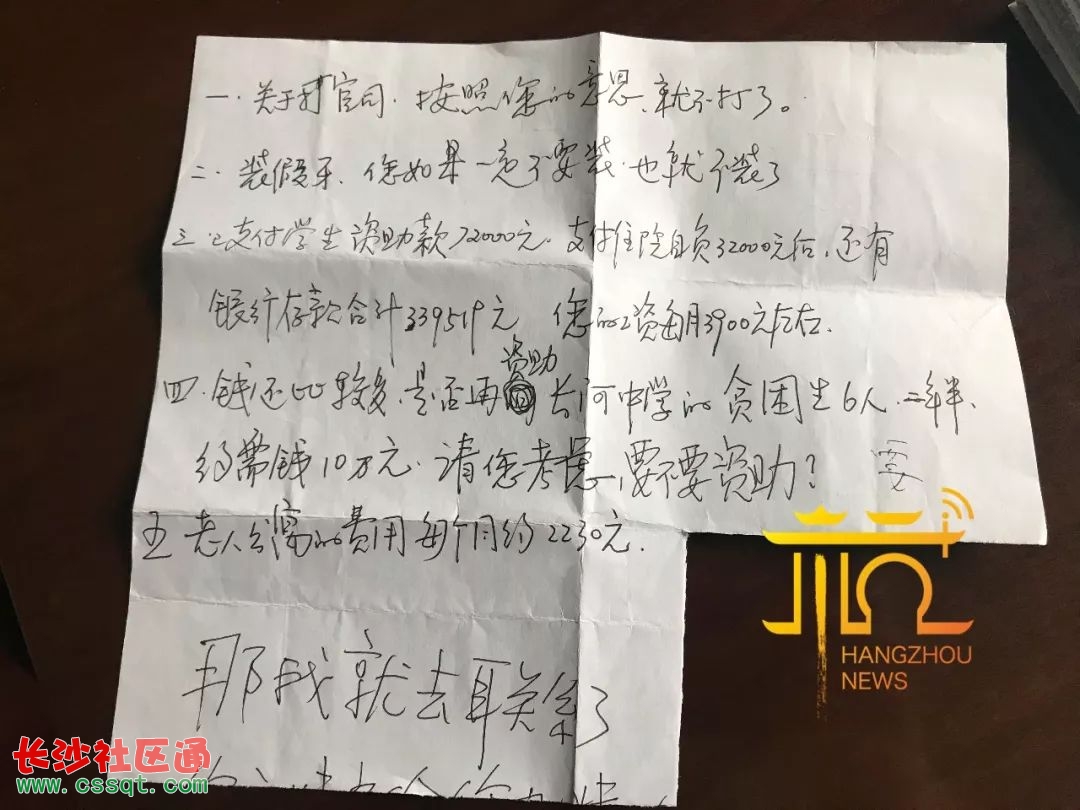 一．关于打官司．按照您的意思、就不打了。
二．装假牙、您如果一定不要装．也就不装了
三．已支付学生资助款72000元．支付住院自负32000元后．还有
银行存款合计339519元 您的工资每月3900元左右．
资助
四．钱还比较多．是否再 长河中学的贫困生6人．二年半、
约需钱10万元．请您考虑、要不要资助？ 要
五 老人公寓的费用每个月约2230元．
那我就去联系了
HANGZHOU
NEWS
长沙社区通
www.cssqt.com